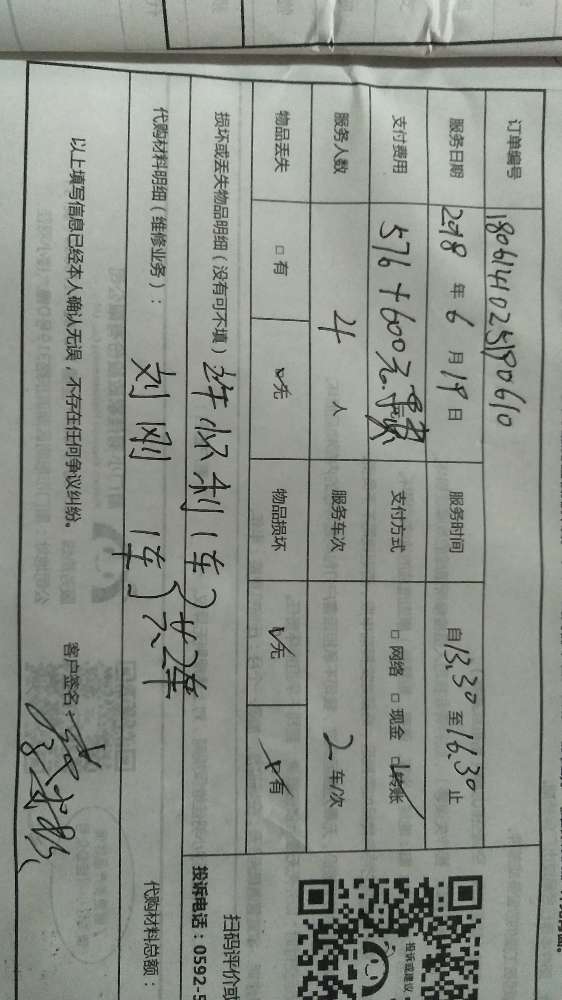 订单编号 180614025190610
服务日期 2018 年 6 月 19 日 服务时间 自 13.30 至 16.30 止
支付费用 576+600元. 支付方式 □ 网络 □ 现金 ☑ 转账
服务人数 4 人 服务车次 2 车/次
物品丢失 □ 有 ☑ 无 物品损坏 ☑ 无 有
损坏或丢失物品明细（没有可不填） 许怀利 1车
代购材料明细（维修业务）： 刘刚 1车 共2车
代购材料总额：
以上填写信息已经本人确认无误，不存在任何争议纠纷。 客户签名：
投诉或建议
扫码评价或
投诉电话：0592-5